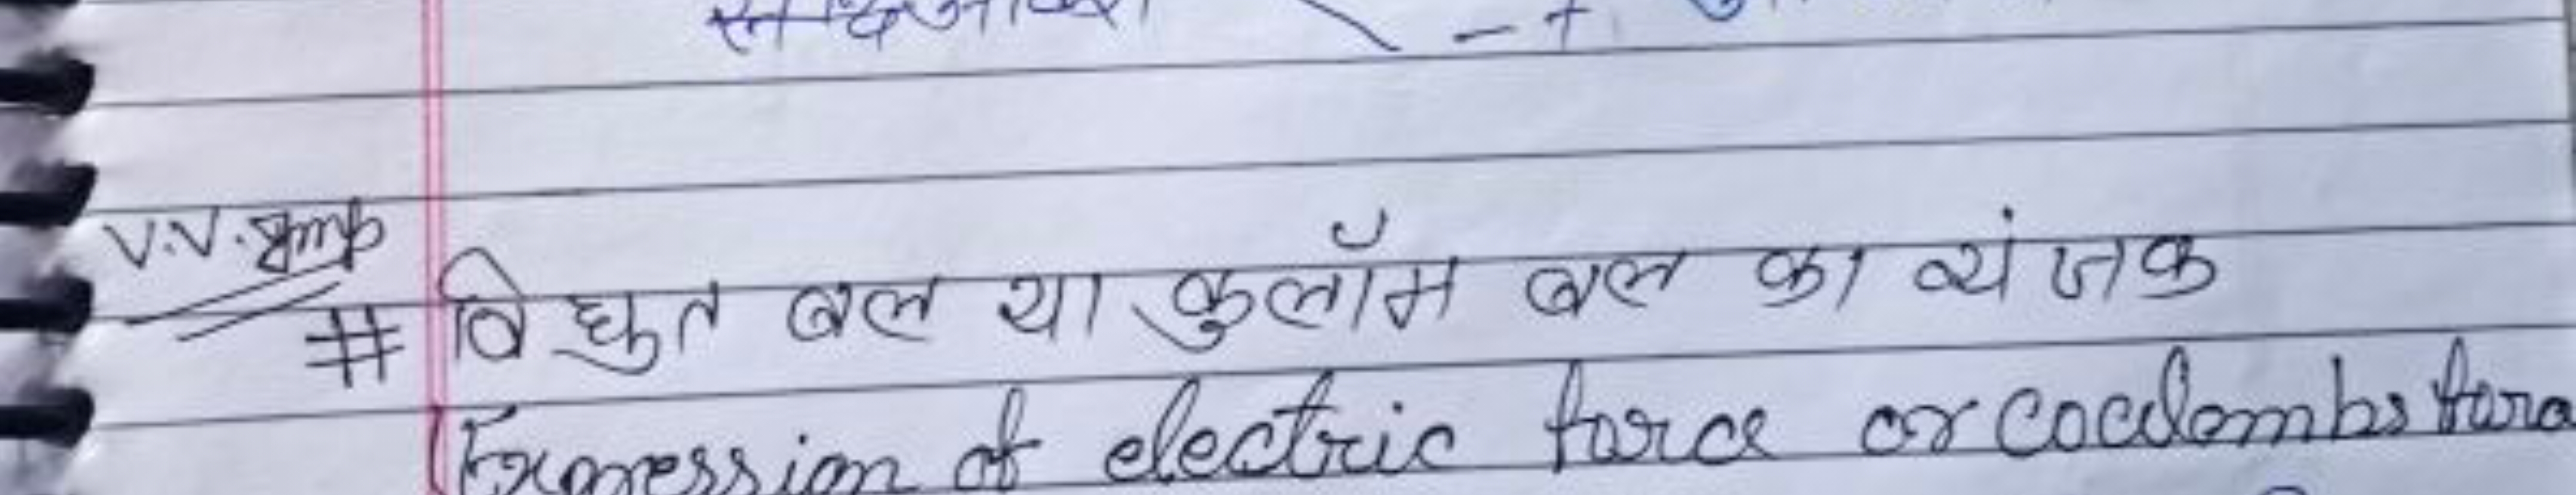 V.V. Imp
# विद्युत बल या कुलॉम बल का व्यंजक
(Expression of electric force or Coculombs